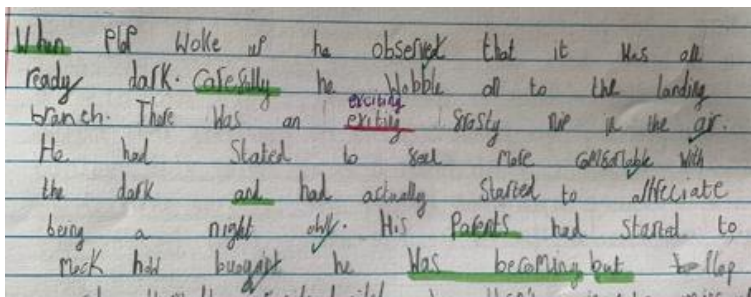 When Plop woke up he observed that it was all
ready dark. Carefully he Wobble on to the landing
exciting
branch. There was an exiting frosty nip in the air.
He had Stated to feel more comfortable with
the dark and had actually Started to
being a night owl. His Parents had started to
how buoyant he Was becoming but flap